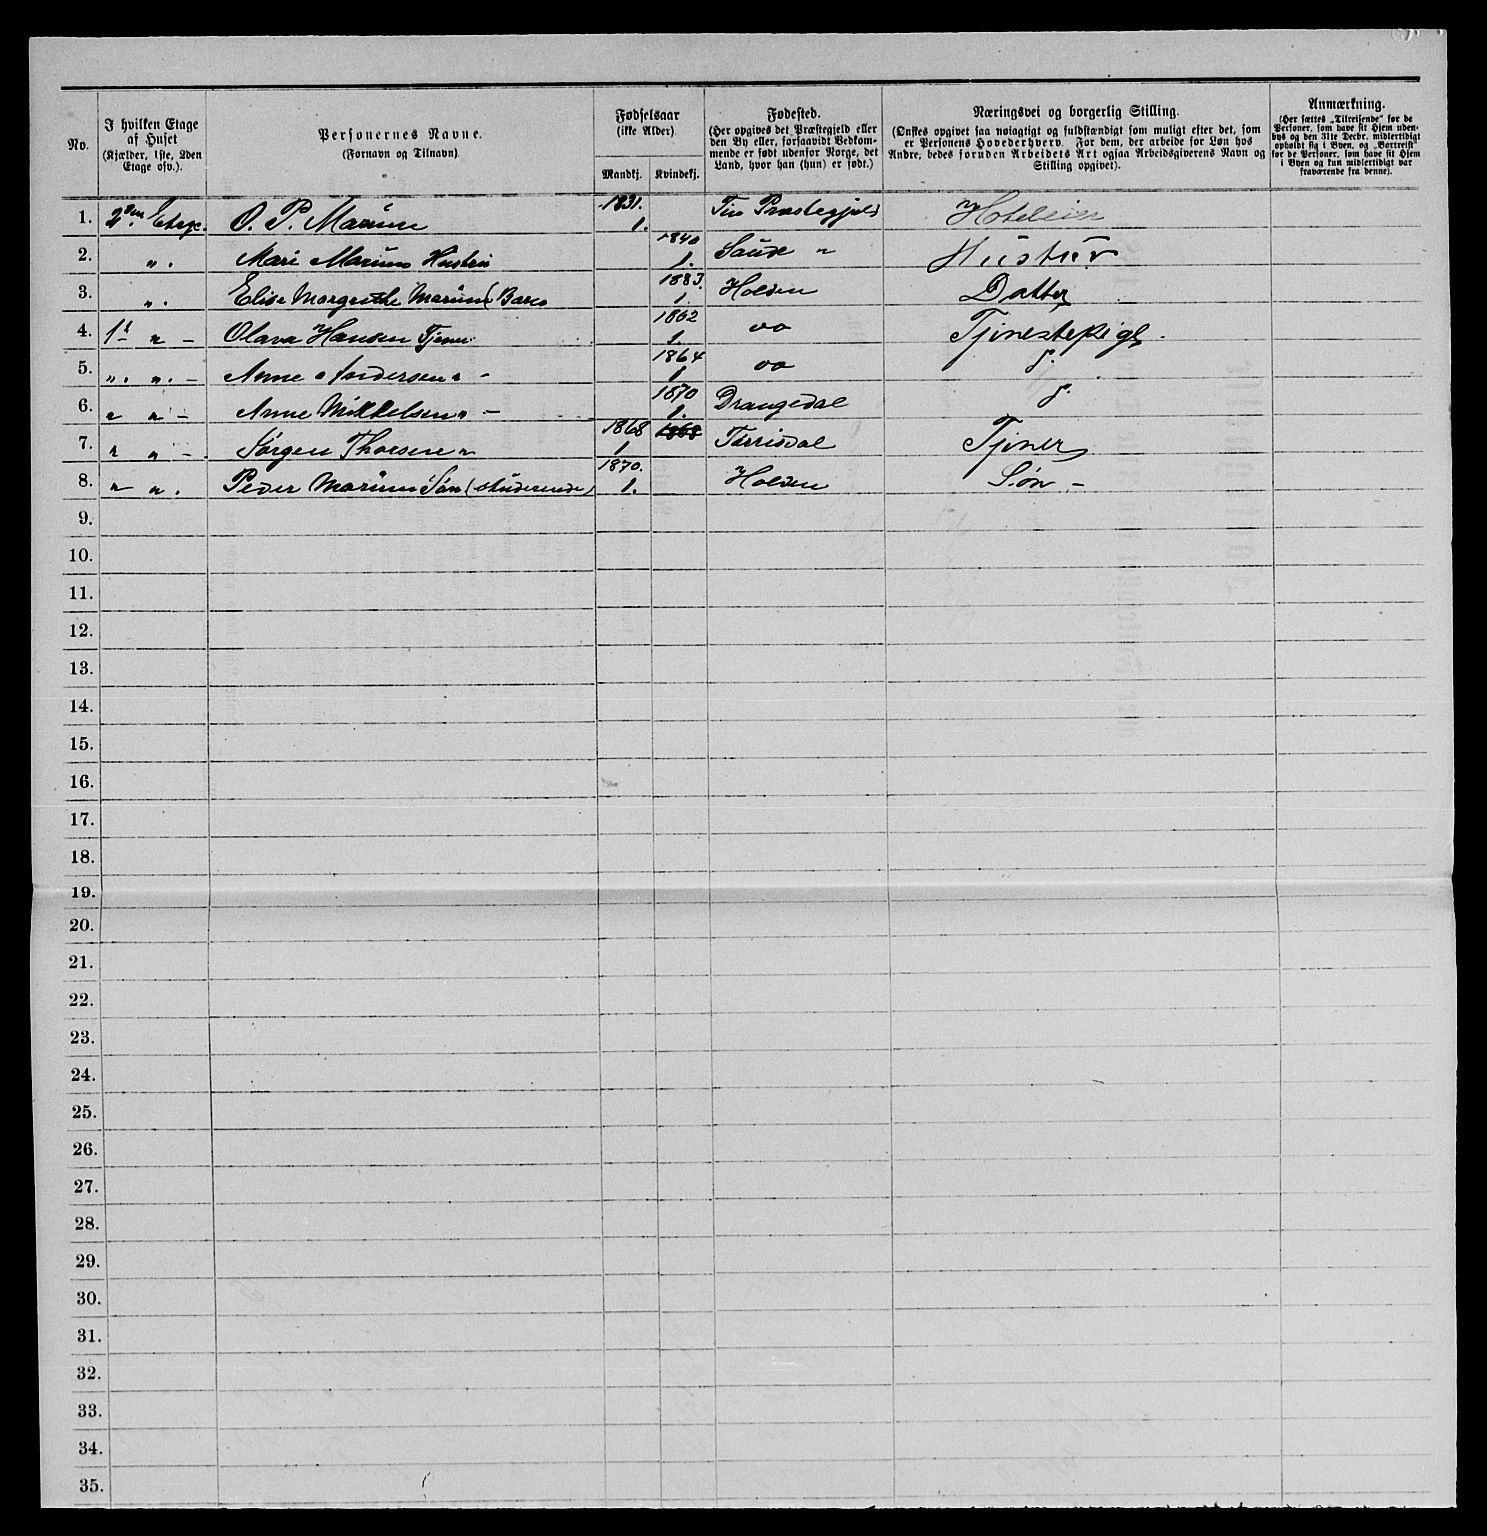 No.
I hvilken Etage af Huset (Kjælder, 1ste, 2den Etage osv.).
Personernes Navne. (Fornavn og Tilnavn)
Fødselsaar (ikke Alder)
Mandkj. Kvindekj.
Fødested. (Her opgives det Præstegjeld eller den By eller, forsaavidt Vedkommende er født udenfor Norge, det Land, hvor han (hun) er født.)
Næringsvei og borgerlig Stilling. (Ønskes opgivet saa nøiagtigt og fuldstændigt som muligt efter det, som er Personens Hovederhverv. For dem, der arbeide for Løn hos Andre, bedes foruden Arbeidets Art ogsaa Arbeidsgiverens Navn og Stilling opgivet).
Anmærkning. (Her sættes „Tilreisende“ for de Personer, som have sit Hjem udenbys og den 31te Decbr. midlertidigt opholdt sig i Byen, og „Bortreist“ for de Personer, som have sit Hjem i Byen og kun midlertidigt var fraværende fra denne).
1. 2den Etage. O. P. Marum 1831. 1. Tin Præstegjeld Hoteleier
2. „. Mari Marum Hustru 1840 1. Saude „ Hustru
3. „. Elise Margrethe Marum (Barn 1883. 1. Holden Datter
4. 1t „ – Olava Hansen Tjener 1862 1. do Tjenestepige.
5. „. „. – Anne Andersen „ - 1864 1 do d.
6. „ „ – Anne Mikkelsen „ – 1870 1. Drangedal d.
7. „ „ –. Jørgen Thorsen „ 1868 1 1868 Tørrisdal Tjener
8. „ „. Peder Marum Søn (studerende) 1870. 1. Holden Søn –
9.
10.
11.
12.
13.
14.
15.
16.
17.
18.
19.
20.
21.
22.
23.
24.
25.
26.
27.
28.
29.
30.
31.
32.
33.
34.
35.